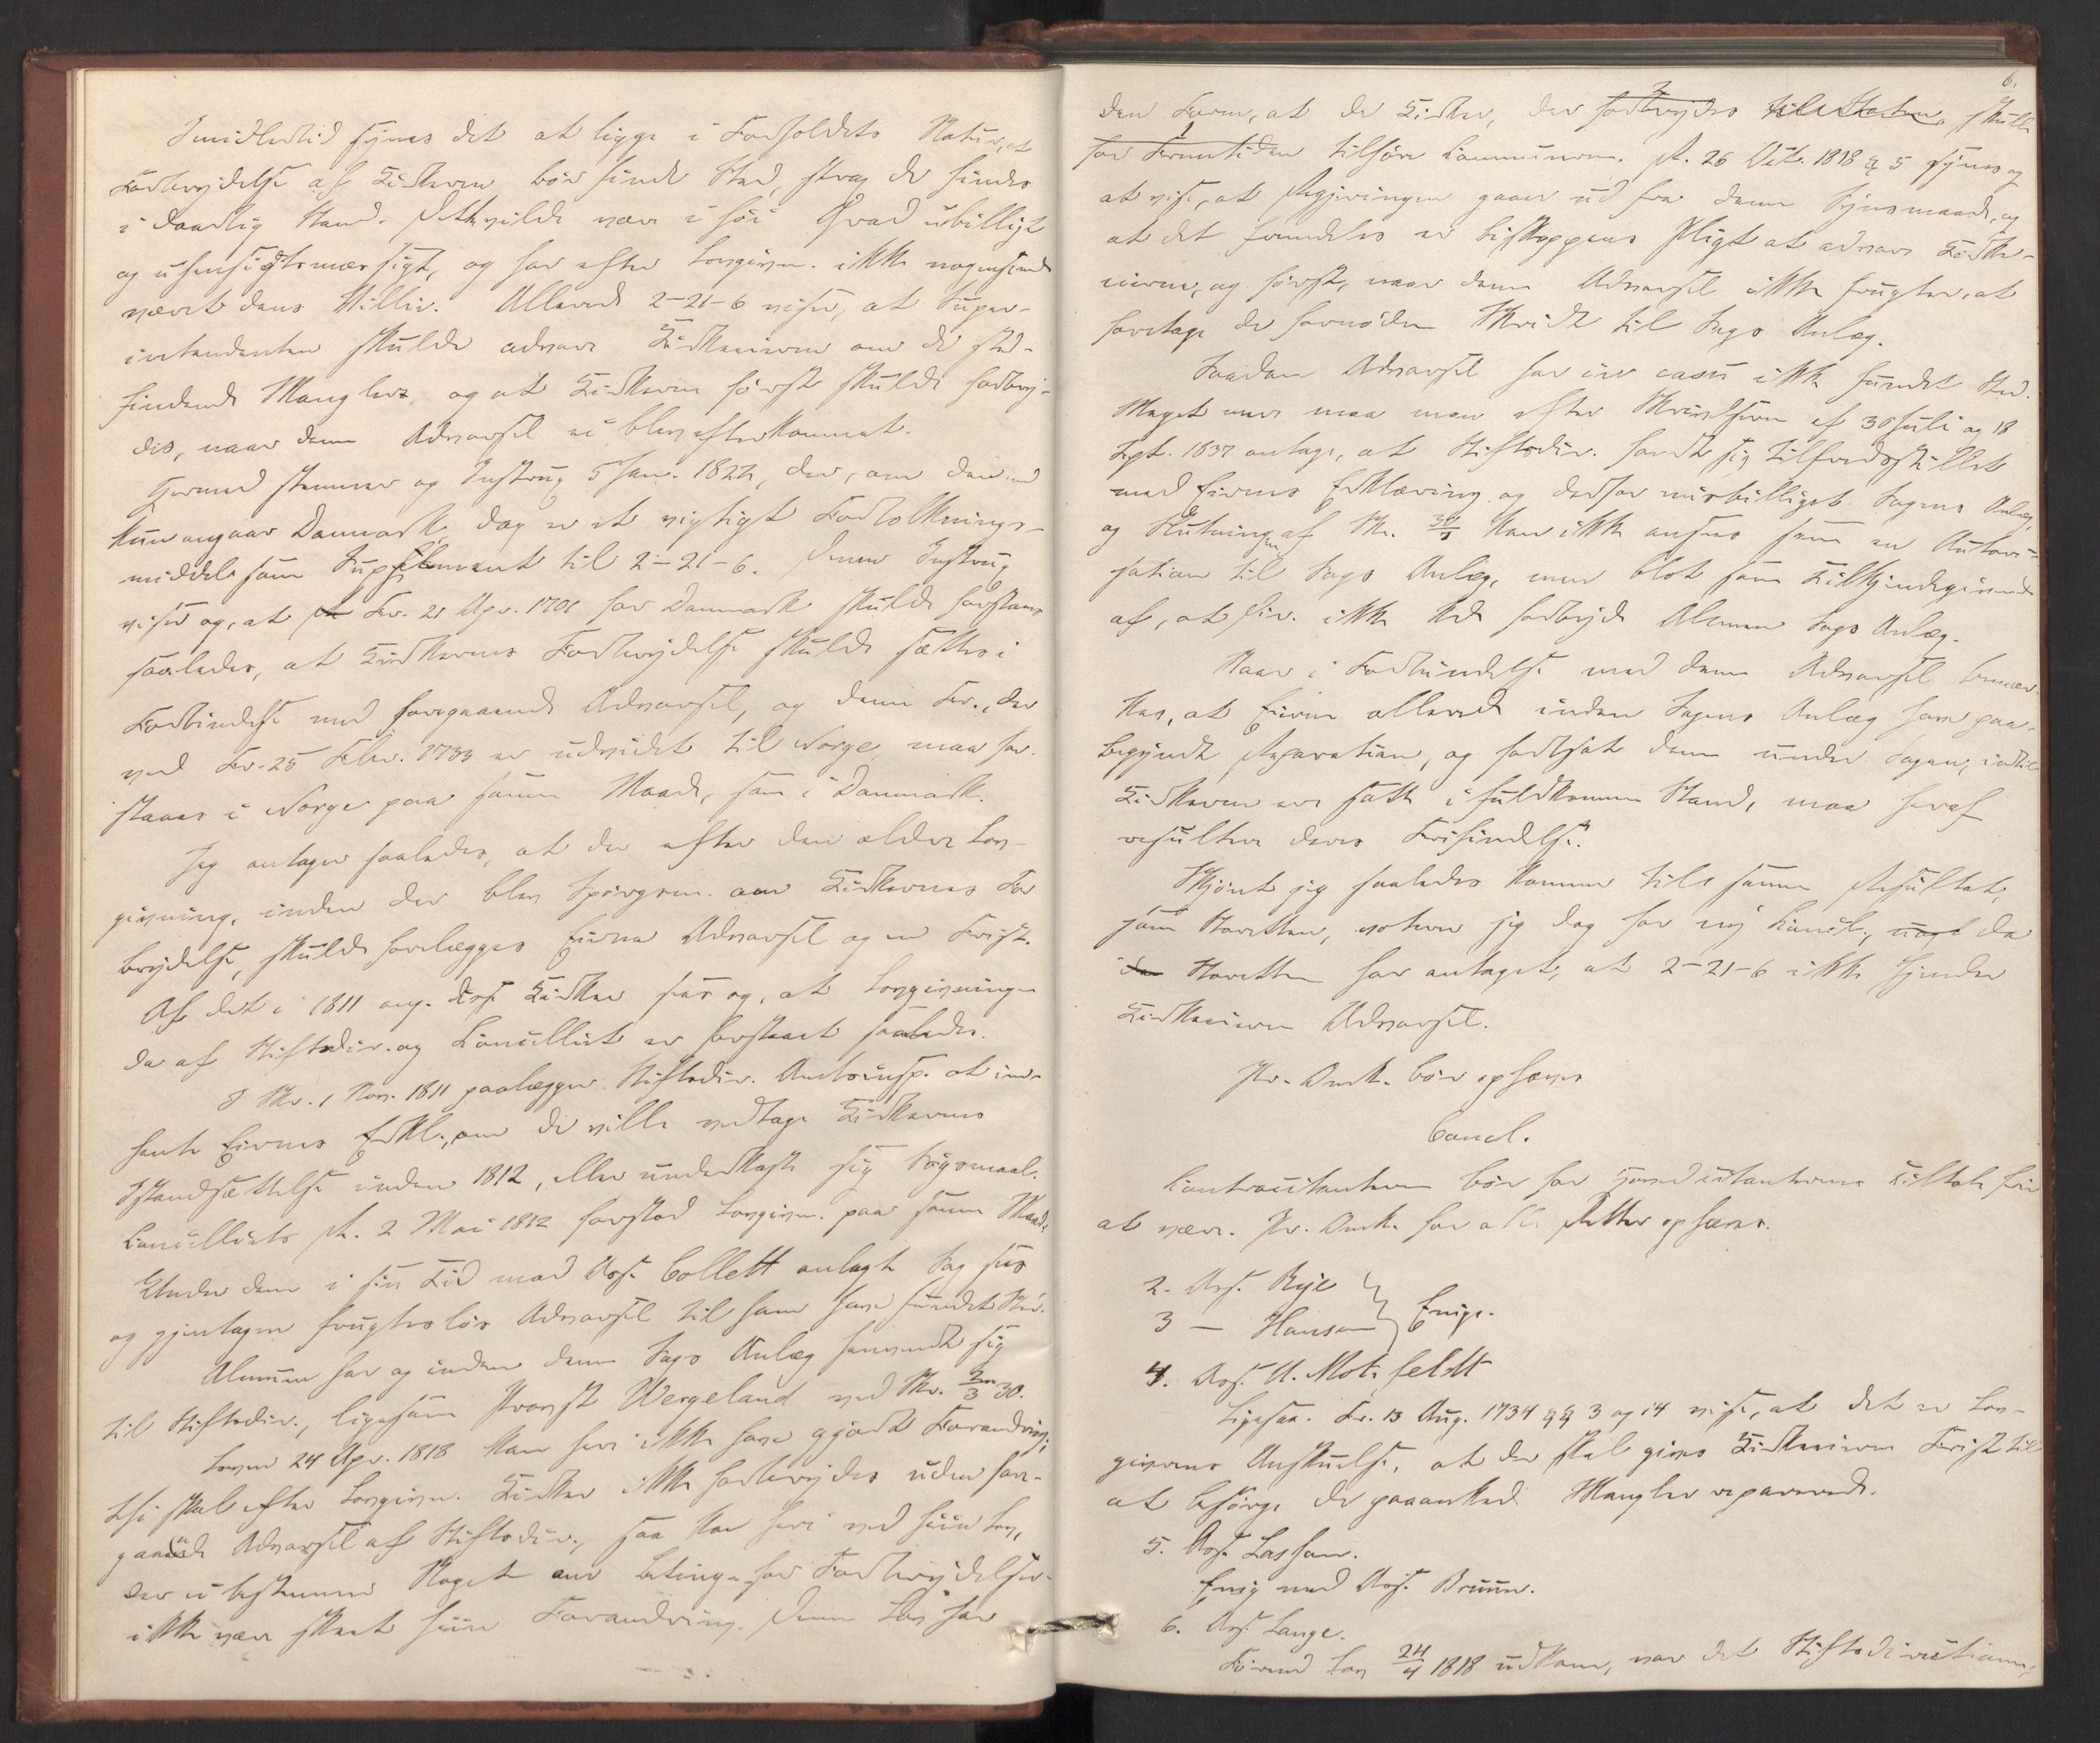 Imidlertid synes det at ligge i Forholdets Natur, at
Forbrydelse af Kirkerne bør finde Sted, strax de findes
i daarlig Stand. Dette vilde være i høi Grad ubilligt
og uhensigtsmæssigt, og har efter Lovgivn. ikke nogensinde
været dens Villie. Allerede 2-21-6 viser, at Super-
intendenten skulde advare Kirkeeierne om de sted-
findende Mangler, og at Kirkerne først skulde forbry-
des, naar denne Advarsel ei blev efterkommet.
Hermed stemmer og Instrux 5 Jan. 1822, der, om den end
kun angaar Danmark, dog er et vigtigt Fortolknings-
middel som Supplement til 2-21-6. Denne Instrux
viser og, at Fr. 21 Apr. 1701 for Danmark skulde forstaaes
saaledes, at Kirkernes Forbrydelse skulde sættes i
Forbindelse med foregaaende Advarsel, og denne Fr., der
ved Fr. 25 Febr. 1733 er udvidet til Norge, maa for-
staaes i Norge paa samme Maade, som i Danmark.
Jeg antager saaledes, at der efter den ældre Lov-
givning, inden der blev Spørgsm. om Kirkernes For-
brydelse, skulde forelægges Eierne Advarsel og en Frist.
Af det i 1811 ang. disse Kirker sees og, at Lovgivningen
da af Stiftsdir. og Cancelliet er forstaaet saaledes.
I Skr. 1 Nov. 1811 paalægger Stiftsdir. Amtsinsp. at ind-
hente Eiernes Erkl., om de ville vedtage Kirkernes
Istandsættelse inden 1812, eller underkaste sig Søgsmaal.
Cancelliets R. 2 Mai 1812 forstod Lovgivn. paa samme Maade.
Under den i sin Tid mod Ass. Collett anlagte Sag sees
og gjentagen frugtesløs Advarsel til ham have fundet Sted.
Alumnen har og inden denne Sags Anlæg henvendt sig
til Stiftsdir., ligesom Provst Wergeland ved Skr. 30.
Loven 24 Apr. 1818 kan heri ikke have gjort Forandring,
thi skal efter Lovgivn. Kirker ikke forbrydes uden fore-
gaaende Advarsel af Stiftsdir., saa kan heri ved hiin Lov,
der ei bestemmer Noget om Beting. for Forbrydelsen
ikke være skeet hiin Forandring. Denne Lov har
6.
den Form, at de Kirker, der forbrydes til Staten, skulle
for Fremtiden tilhøre Communerne. R. 26 Oct. 1818 § 5 synes og
at vise, at Regjeringen gaaer ud fra denne Synsmaade, og
at det fremdeles er Biskoppens Pligt at advare Kirke-
eierne, og først, naar denne Advarsel ikke frugter, at
foretage de fornødne Skridt til Sags Anlæg.
Saadan Advarsel har in casu ikke fundet Sted.
Meget mere maa man efter Skrivelserne af 30 Juli og 18
Sept. 1837 antage, at Stiftsdir. fandt sig tilfredsstillet
med Eiernes Erklæring og derfor misbilliget Sagens Anlæg,
og Slutningen af Skr. kan ikke ansees som en Autori-
sation til Sags Anlæg, men blot som Tilkjendegivende
af, at Dir. ikke kan forbyde Alumnen Sags Anlæg.
Naar i Forbindelse med denne Advarsel bemær-
kes, at Eierne allerede inden Sagens Anlæg have paa-
begyndt Reparation, og fortsat denne under Sagen, indtil
Kirkerne ere satte i fuldkommen Stand, maa heraf
resultere deres Frifindelse.
Skjønt jeg saaledes kommer til samme Resultat,
som Stiftsretten, voterer jeg dog for ny Concl., da
Stiftsretten har antaget, at 2-21-6 ikke hjemler
Kirkeeierne Advarsel.
Pr. Omk. bør ophæves
Concl.
Contracitanterne bør for Hovedcitanternes Tiltale fri
at være. Pr. Omk. for alle Retter ophæves.
2. Ass. Rye
3 — Hansen } Enige.
4. Ass. U. Motzfeldt
Ligesaa. Fr. 13 Aug. 1734 §§ 3 og 14 viser, at det er Lov-
giverens Anskuelse, at der skal gives Kirkeeierne Frist til
at besørge de paaankede Mangler reparerede.
5. Ass. Lasson.
Enig med Ass. Bruun.
6. Ass. Lange.
Førend Lov 24/4 1818 udkom, var det Stiftsdirectionen,